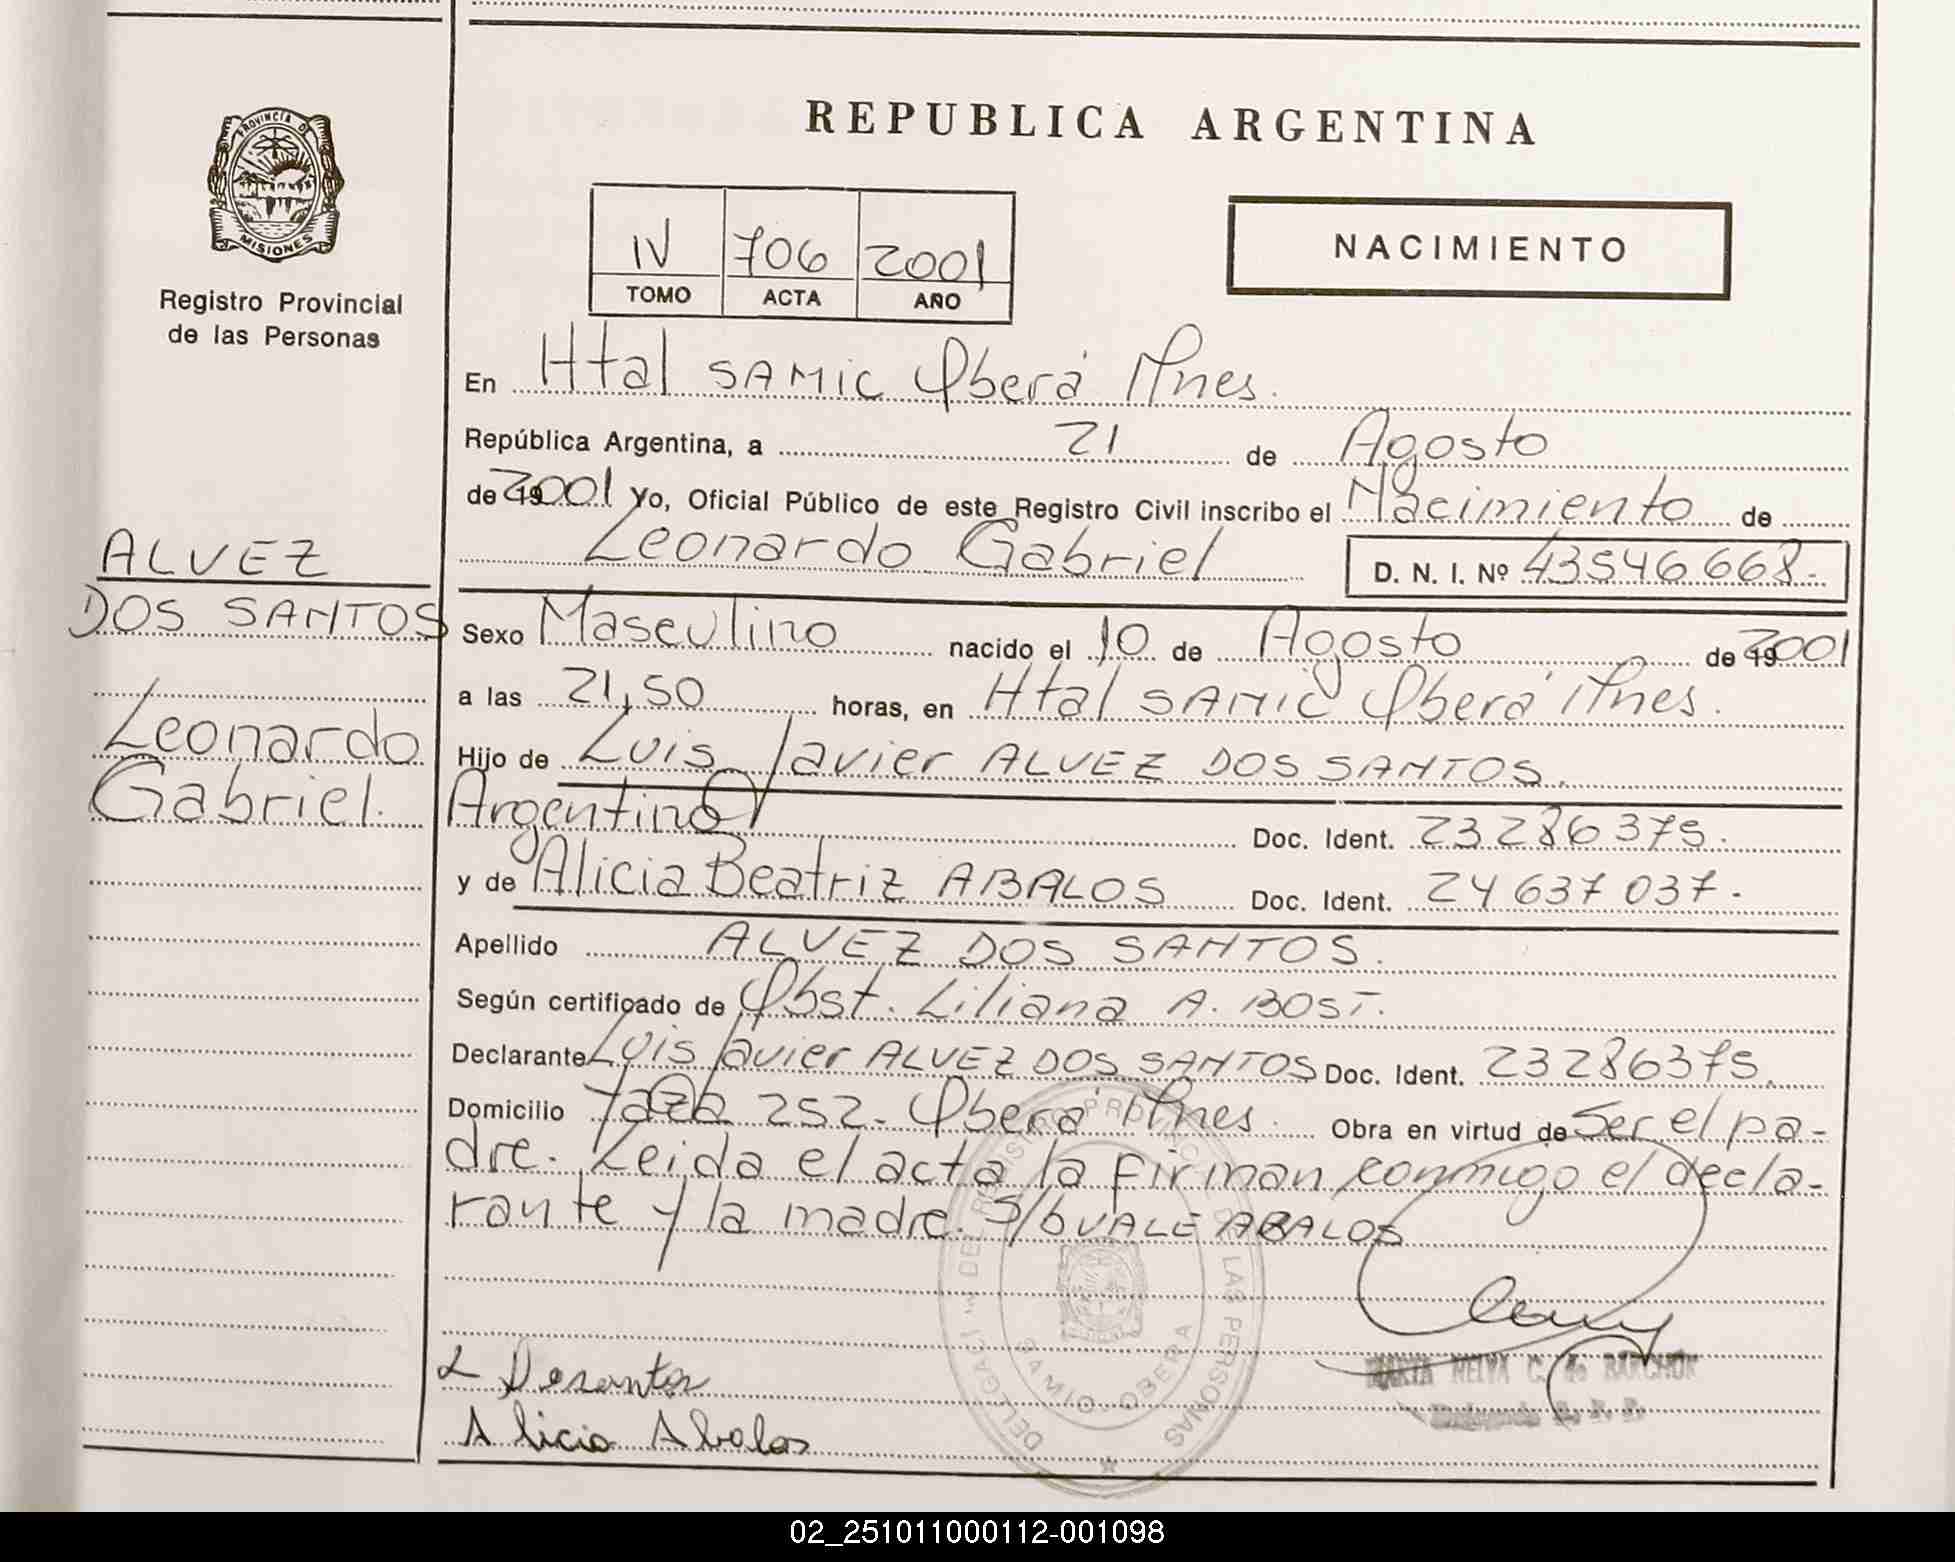 REPUBLICA ARGENTINA
PROVINCIA DE MISIONES
Registro Provincial
de las Personas
IV 706 2001
TOMO ACTA AÑO
NACIMIENTO
En Htal SAMIC Oberá Mnes.
República Argentina, a 21 de Agosto
de 2001 Yo, Oficial Público de este Registro Civil inscribo el Nacimiento de
Leonardo Gabriel D. N. I. Nº 43546668.-
ALVEZ
DOS SANTOS
Leonardo
Gabriel.
Sexo Masculino nacido el 10 de Agosto de 2001
a las 21,50 horas, en Htal SAMIC Oberá Mnes.
Hijo de Luis Javier ALVEZ DOS SANTOS.
Argentino Doc. Ident. 23286375.
y de Alicia Beatriz ABALOS Doc. Ident. 24637037.
Apellido ALVEZ DOS SANTOS.
Según certificado de Obst. Liliana A. BOST.
Declarante Luis Javier ALVEZ DOS SANTOS Doc. Ident. 23286375.
Domicilio 252- Oberá Mnes. Obra en virtud de Ser el pa-
dre. Leida el acta la firman conmigo el decla-
rante y la madre. S/b VALE ABALOS
DEL REGISTRO PROVINCIAL DE LAS PERSONAS
SAMIC-OBERA
MARIA NELVA C. de
L Dosantos
Alicia Abalos
02_251011000112-001098